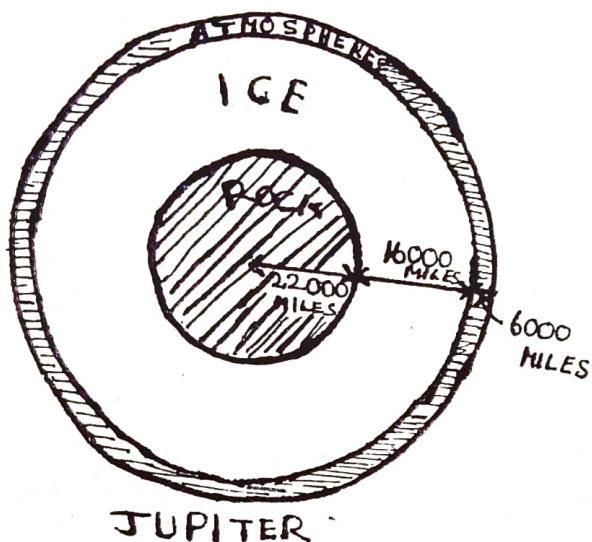 ATMOSPHERE
ICE
ROCK
22000
MILES
16000
MILES
6000
MILES
JUPITER